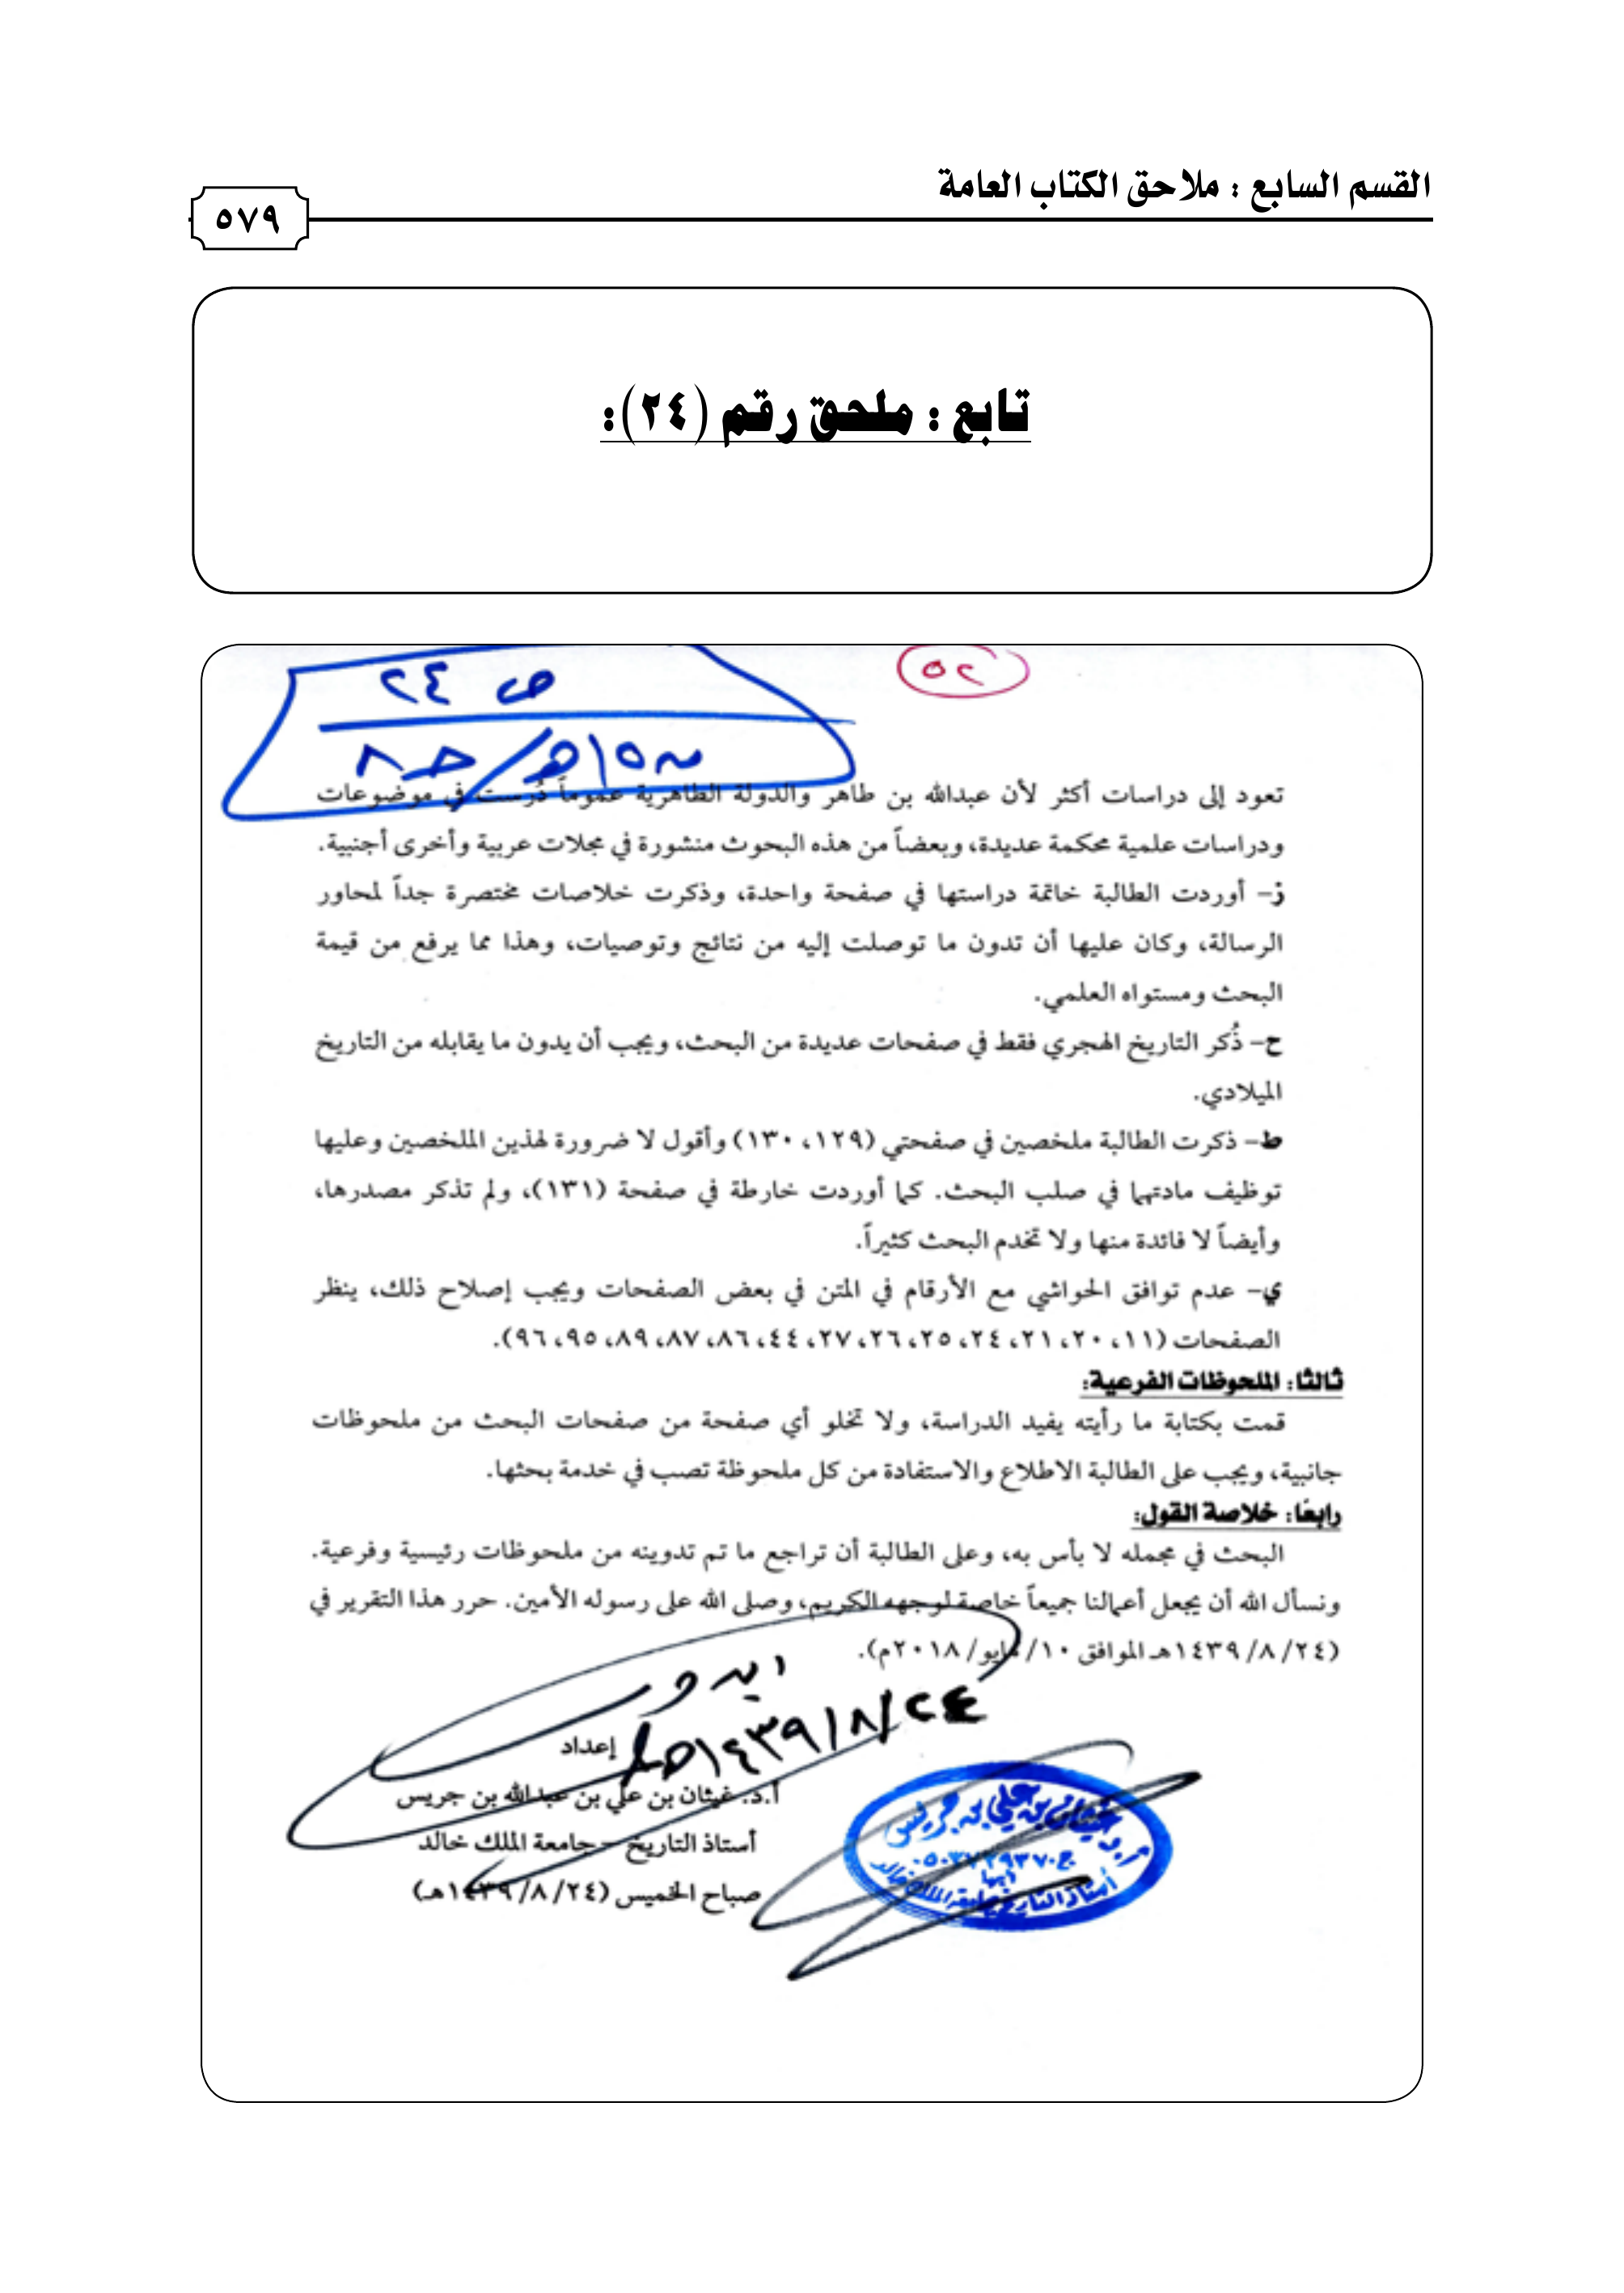 القسم السابع : ملاحق الكتاب العامة
٥٧٩
تابع : ملحق رقم (٢٤):
٥٢
ص ٢٤
تعود إلى دراسات أكثر لأن عبدالله بن طاهر والدولة الطاهرية عموماً دُرست في موضوعات
ودراسات علمية محكمة عديدة، وبعضاً من هذه البحوث منشورة في مجلات عربية وأخرى أجنبية.
ز- أوردت الطالبة خاتمة دراستها في صفحة واحدة، وذكرت خلاصات مختصرة جداً لمحاور
الرسالة، وكان عليها أن تدون ما توصلت إليه من نتائج وتوصيات، وهذا مما يرفع من قيمة
البحث ومستواه العلمي.
ح- ذُكر التاريخ الهجري فقط في صفحات عديدة من البحث، ويجب أن يدون ما يقابله من التاريخ
الميلادي.
ط- ذكرت الطالبة ملخصين في صفحتي (١٢٩، ١٣٠) وأقول لا ضرورة لهذين الملخصين وعليها
توظيف مادتهما في صلب البحث. كما أوردت خارطة في صفحة (١٣١)، ولم تذكر مصدرها،
وأيضاً لا فائدة منها ولا تخدم البحث كثيراً.
ي- عدم توافق الحواشي مع الأرقام في المتن في بعض الصفحات ويجب إصلاح ذلك، ينظر
الصفحات (١١، ٢٠، ٢١، ٢٤، ٢٥، ٢٦، ٢٧، ٤٤، ٨٦، ٨٧، ٨٩، ٩٥، ٩٦).
ثالثا: الملحوظات الفرعية:
قمت بكتابة ما رأيته يفيد الدراسة، ولا تخلو أي صفحة من صفحات البحث من ملحوظات
جانبية، ويجب على الطالبة الاطلاع والاستفادة من كل ملحوظة تصب في خدمة بحثها.
رابعًا: خلاصة القول:
البحث في مجمله لا بأس به، وعلى الطالبة أن تراجع ما تم تدوينه من ملحوظات رئيسية وفرعية.
ونسأل الله أن يجعل أعمالنا جميعاً خاصة لوجهه الكريم، وصلى الله على رسوله الأمين. حرر هذا التقرير في
(١٤٣٩/٨/٢٤هـ الموافق ١٠/مايو/٢٠١٨م).
١٤٣٩/٨/٢٤هـ
إعداد
أ.د. غيثان بن علي بن عبدالله بن جريس
أستاذ التاريخ – جامعة الملك خالد
صباح الخميس (١٤٣٩/٨/٢٤هـ)
أ.د غيثان بن علي بن جريس
أبها
أستاذ التاريخ بجامعة الملك خالد